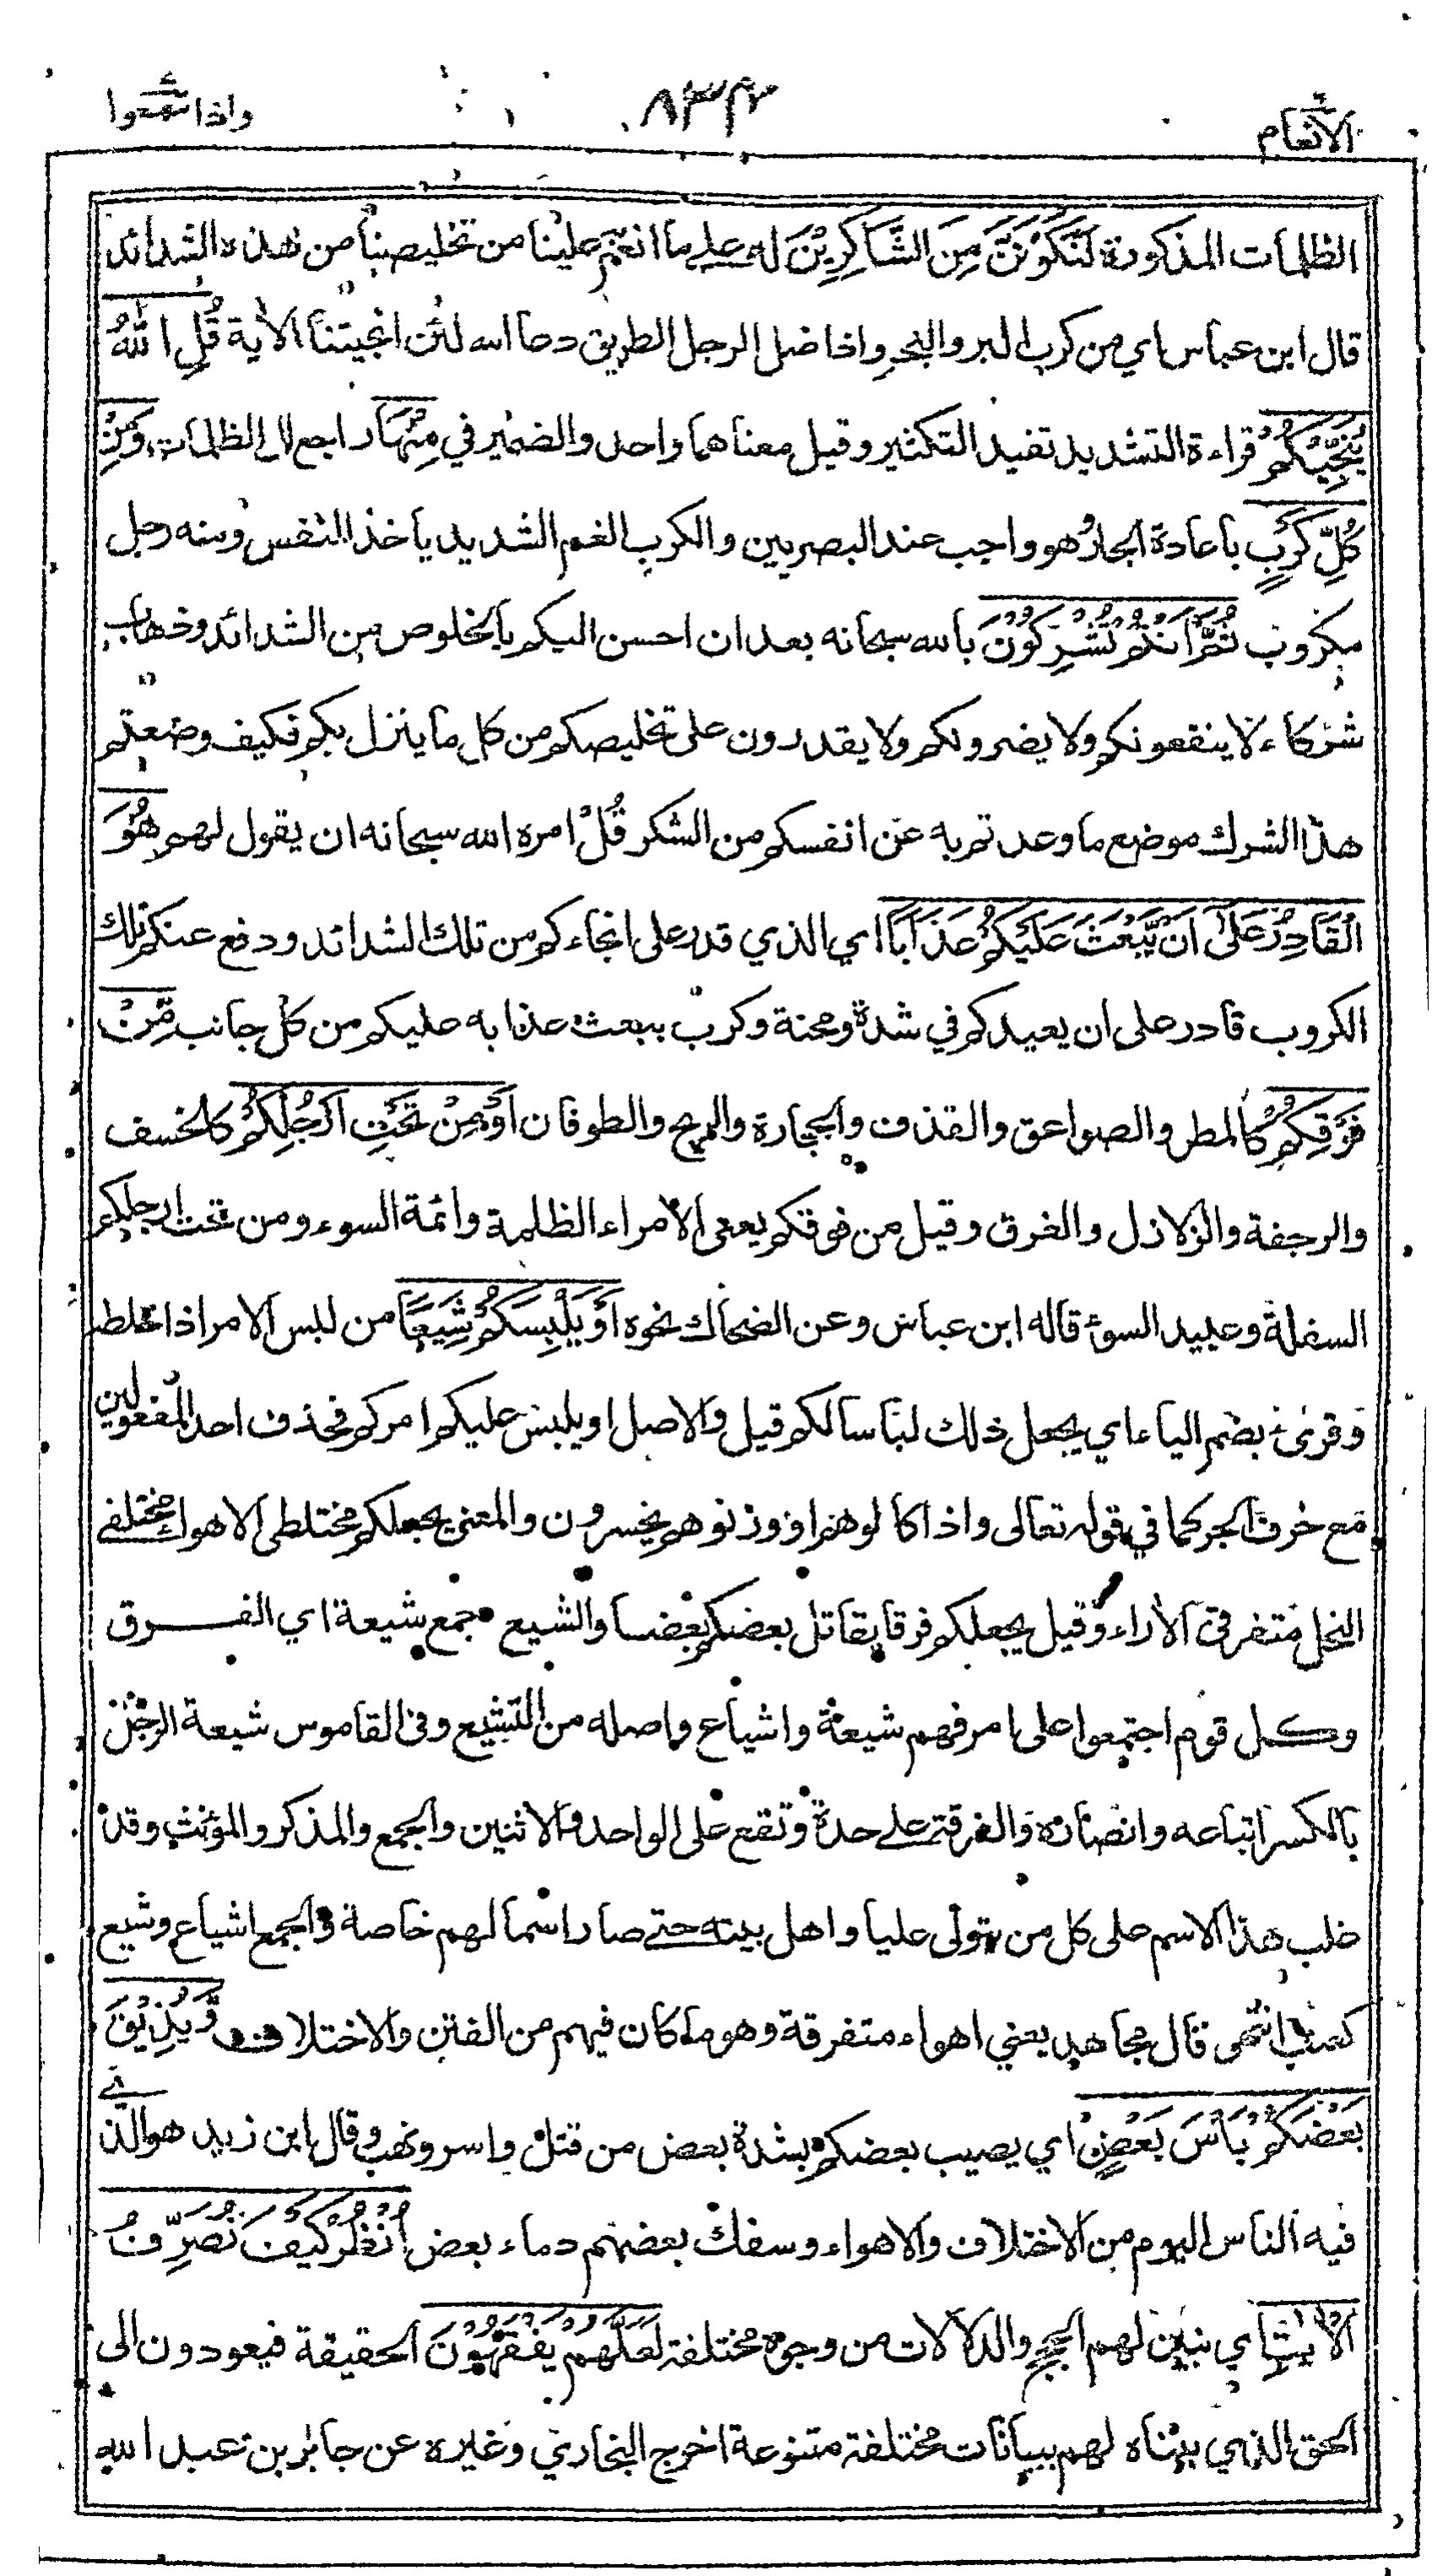 الانعام
٨٣٤
واذا سمعوا
الظلمات المذكورة لَنَكُوْنَنَّ مِنَ الشَّاكِرِيْنَ له على ما انعم علينا من تخليصنا من هذه الشدائد
قال ابن عباس اي من كرب البر والبحر واذا ضل الرجل الطريق دعا الله لئن انجيتنا الاية قُلِ اللّٰهُ
يُنَجِّيْكُمْ قراءة التشديد تفيد التكثير وقيل معناهما واحد والضمير في مِنْهَا راجع الى الظلمات وَمِنْ
كُلِّ كَرْبٍ باعادة الجار وهو واجب عند البصريين والكرب الغم الشديد يأخذ النفس ومنه رجل
مكروب ثُمَّ اَنْتُمْ تُشْرِكُوْنَ بالله سبحانه بعد ان احسن اليكم بالخلوص من الشدائد وذهاب
شركاء لا ينفعونكم ولا يضرونكم ولا يقدرون على تخليصكم من كل ما ينزل بكم فكيف وضعتم
هذا الشرك موضع ما وعدتم به عن انفسكم من الشكر قُلْ امره الله سبحانه ان يقول لهم هُوَ
الْقَادِرُ عَلٰى اَنْ يَّبْعَثَ عَلَيْكُمْ عَذَابًا اي الذي قدر على انجاءكم من تلك الشدائد ودفع عنكم تلك
الكروب قادر على ان يعيدكم في شدة ومحنة وكرب ببعث عذابه عليكم من كل جانب مِّنْ
فَوْقِكُمْ كالمطر والصواعق والقذف والحجارة والريح والطوفان اَوْ مِنْ تَحْتِ اَرْجُلِكُمْ كالخسف
والرجفة والزلازل والغرق وقيل من فوقكم يعني الامراء الظلمة وائمة السوء ومن تحت ارجلكم
السفلة وعبيد السوء قاله ابن عباس وعن الضحاك نحوه اَوْ يَلْبِسَكُمْ شِيَعًا من لبس الامر اذا خلطه
وقرئ بضم الياء اي يجعل ذلك لباسا لكم قيل والاصل او يلبس عليكم امركم فحذف احد المفعولين
مع حرف الجر كما في قوله تعالى واذا كالوهم او وزنوهم يخسرون والمعنى يجعلكم مختلطي الاهواء مختلفي
النحل متفرقي الآراء وقيل يجعلكم فرقا يقاتل بعضكم بعضا والشيع جمع شيعة اي الفرق
وكل قوم اجتمعوا على امر فهم شيعة واشياع واصله من التشيع وفي القاموس شيعة الرجل
بالكسر اتباعه وانصاره والفرقة على حدة وتقع على الواحد والاثنين والجمع والمذكر والمؤنث وقد
غلب هذا الاسم على كل من يتولى عليا واهل بيته حتى صار اسما لهم خاصة والجمع اشياع وشيع
كعنب انتهى قال مجاهد يعني اهواء متفرقة وهو ما كان فيهم من الفتن والاختلاف وَّيُذِيْقَ
بَعْضَكُمْ بَأْسَ بَعْضٍ اي يصيب بعضكم بشدة بعض من قتل واسر ونهب وقال ابن زيد هو الذي
فيه الناس اليوم من الاختلاف والاهواء وسفك بعضهم دماء بعض اُنْظُرْ كَيْفَ نُصَرِّفُ
الْاٰيٰتِ اي نبين لهم الحجج والدلالات من وجوه مختلفة لَعَلَّهُمْ يَفْقَهُوْنَ الحقيقة فيعودون الى
الحق الذي بيناه لهم ببيانات مختلفة متنوعة اخرج البخاري وغيره عن جابر بن عبد الله